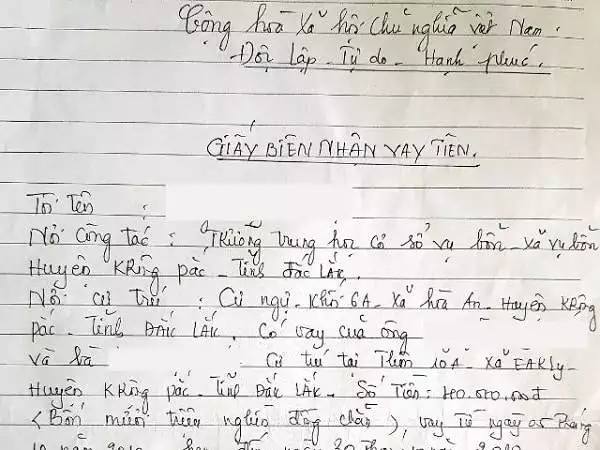 Cộng hoà Xã hội chủ nghĩa việt Nam.
Độc Lập - Tự do - Hạnh phúc.
GIẤY BIÊN NHẬN VAY TIỀN.
Tôi Tên :
Nơi Công tác : Trường trung học cơ sở vụ bổn - xã vụ bổn
Huyện KRông pắc - Tỉnh đắc LẮK.
Nơi cư trú : Cư ngụ - Khối 6A - Xã hòa An - Huyện KRông
pắc - Tỉnh ĐẮK LẮK. Có vay của ông
và bà Cư trú tại Thôn 10A - Xã EAKly -
Huyện KRông pắc - Tỉnh Đắk LẮK - Số Tiền: 40.000.000đ
(Bốn mươi triệu nghìn đồng chẵn), vay Từ ngày 05 tháng
10 năm đến ngày 30 Tháng